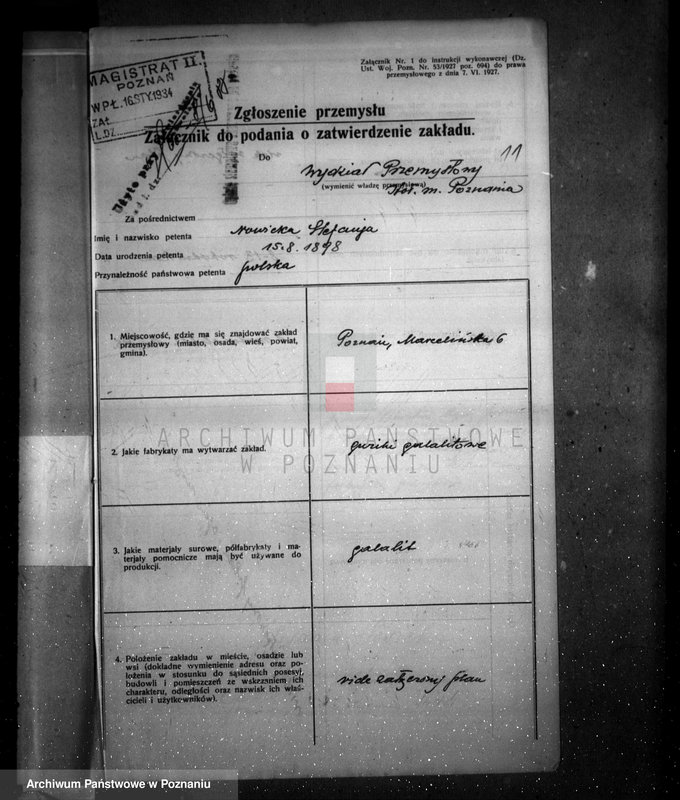 Załącznik Nr. 1 do instrukcji wykonawczej (Dz.
Ust. Woj. Pozn. Nr. 53/1927 poz. 694) do prawa
przemysłowego z dnia 7. VI. 1927.
MAGISTRAT II.
POZNAŃ
WPŁ. 16 STY. 1934
ZAŁ.
L.DZ.
Zgłoszenie przemysłu
Załącznik do podania o zatwierdzenie zakładu.
11
Do Wydział Przemysłowy
(wymienić władzę przemysłową)
Stoł. m. Poznania
Za pośrednictwem
Imię i nazwisko petenta Nowicka Stefanja
Data urodzenia petenta 15.8.1898
Przynależność państwowa petenta polska
1. Miejscowość, gdzie ma się znajdować zakład
przemysłowy (miasto, osada, wieś, powiat,
gmina).
Poznań, Marcelińska 6
2. Jakie fabrykaty ma wytwarzać zakład.
guziki galalitowe
3. Jakie materjały surowe, półfabrykaty i ma-
terjały pomocnicze mają być używane do
produkcji.
galalit
4. Położenie zakładu w mieście, osadzie lub
wsi (dokładne wymienienie adresu oraz po-
łożenia w stosunku do sąsiednich posesyj,
budowli i pomieszczeń ze wskazaniem ich
charakteru, odległości oraz nazwisk ich właś-
cicieli i użytkowników).
vide załączony plan
ARCHIWUM PAŃSTWOWE
W POZNANIU
Archiwum Państwowe w Poznaniu